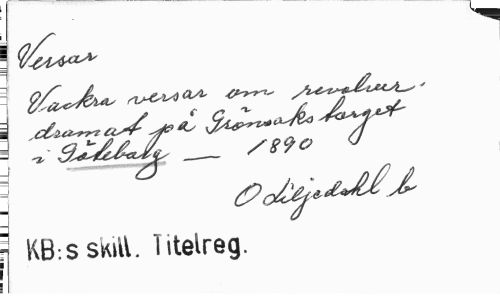 Versar
Vackra versar om revolver-
dramat på Grönsakstorget
i Göteborg — 1890
O Liljedahl b
KB:s skill. Titelreg.